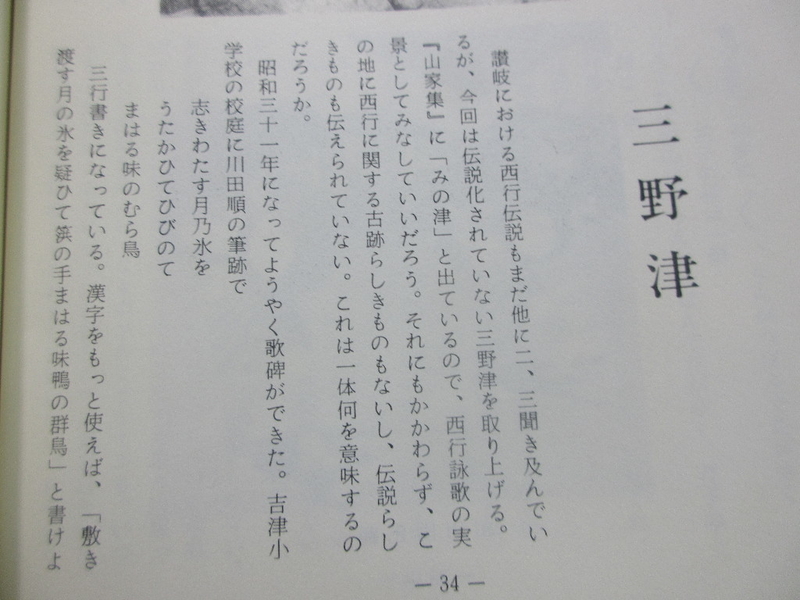 三野津
讃岐における西行伝説もまだ他に二、三聞き及んでい
るが、今回は伝説化されていない三野津を取り上げる。
『山家集』に「みの津」と出ているので、西行詠歌の実
景としてみなしていいだろう。それにもかかわらず、こ
の地に西行に関する古跡らしきものもないし、伝説らし
きものも伝えられていない。これは一体何を意味するの
だろうか。
昭和三十一年になってようやく歌碑ができた。吉津小
学校の校庭に川田順の筆跡で
志きわたす月乃氷を
うたかひてひびのて
まはる味のむら鳥
三行書きになっている。漢字をもっと使えば、「敷き
渡す月の氷を疑ひて篊の手まはる味鴨の群鳥」と書けよ
— 34 —